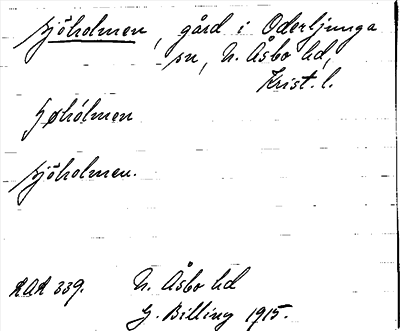 Sjöholmen, gård i Oderljunga
sn, N. Åsbo hd,
Krist. l.
Sjøhólmen
Sjöholmen.
N. Åsbo hd
G. Billing 1915.